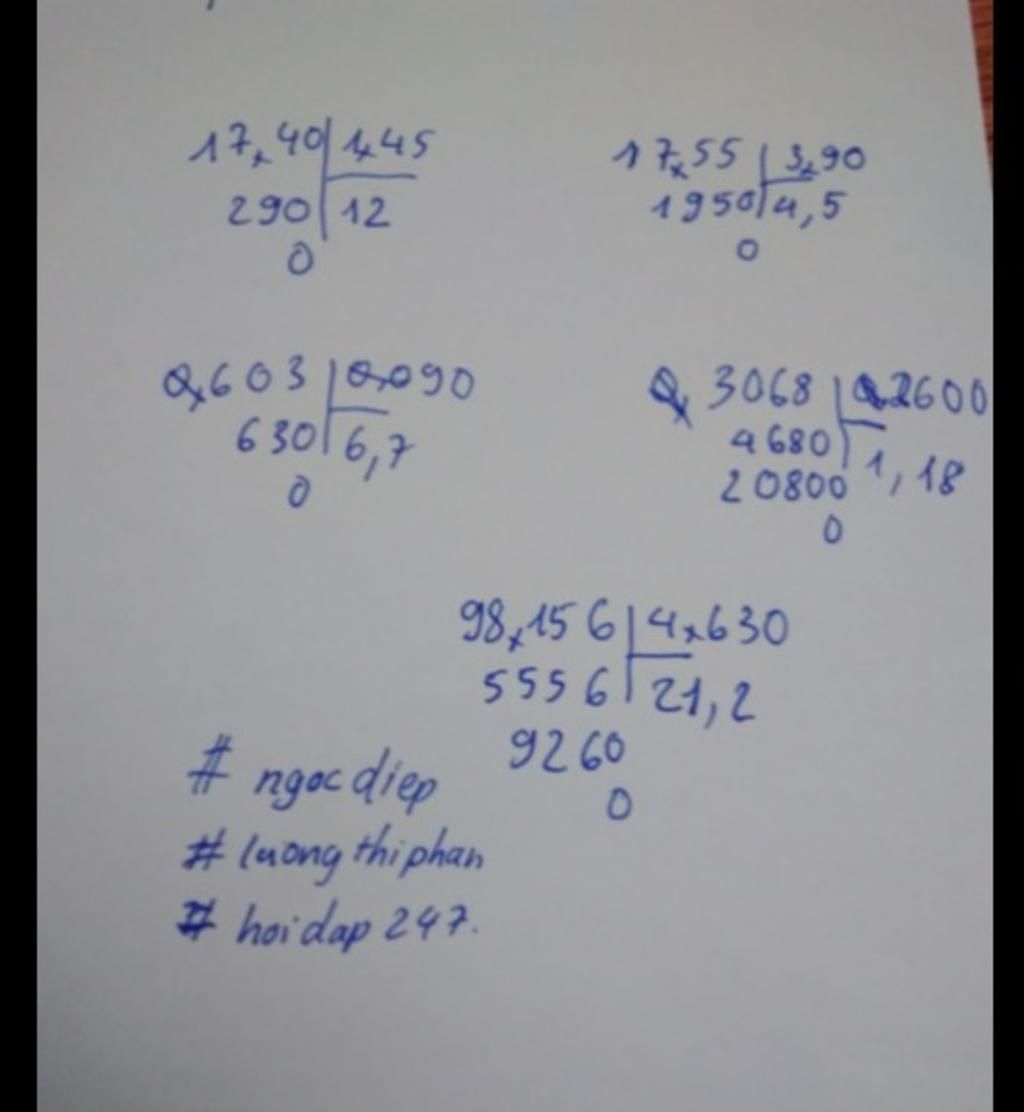 17,40 1,45
290 12
0
17,55 3,90
1950 4,5
0
0,603 0,090
630 6,7
0
0,3068 0,2600
4680 1,18
20800
0
98,156 4,630
5556 21,2
9260
0
# ngocdiep
# luongthiphan
# hoidap247.